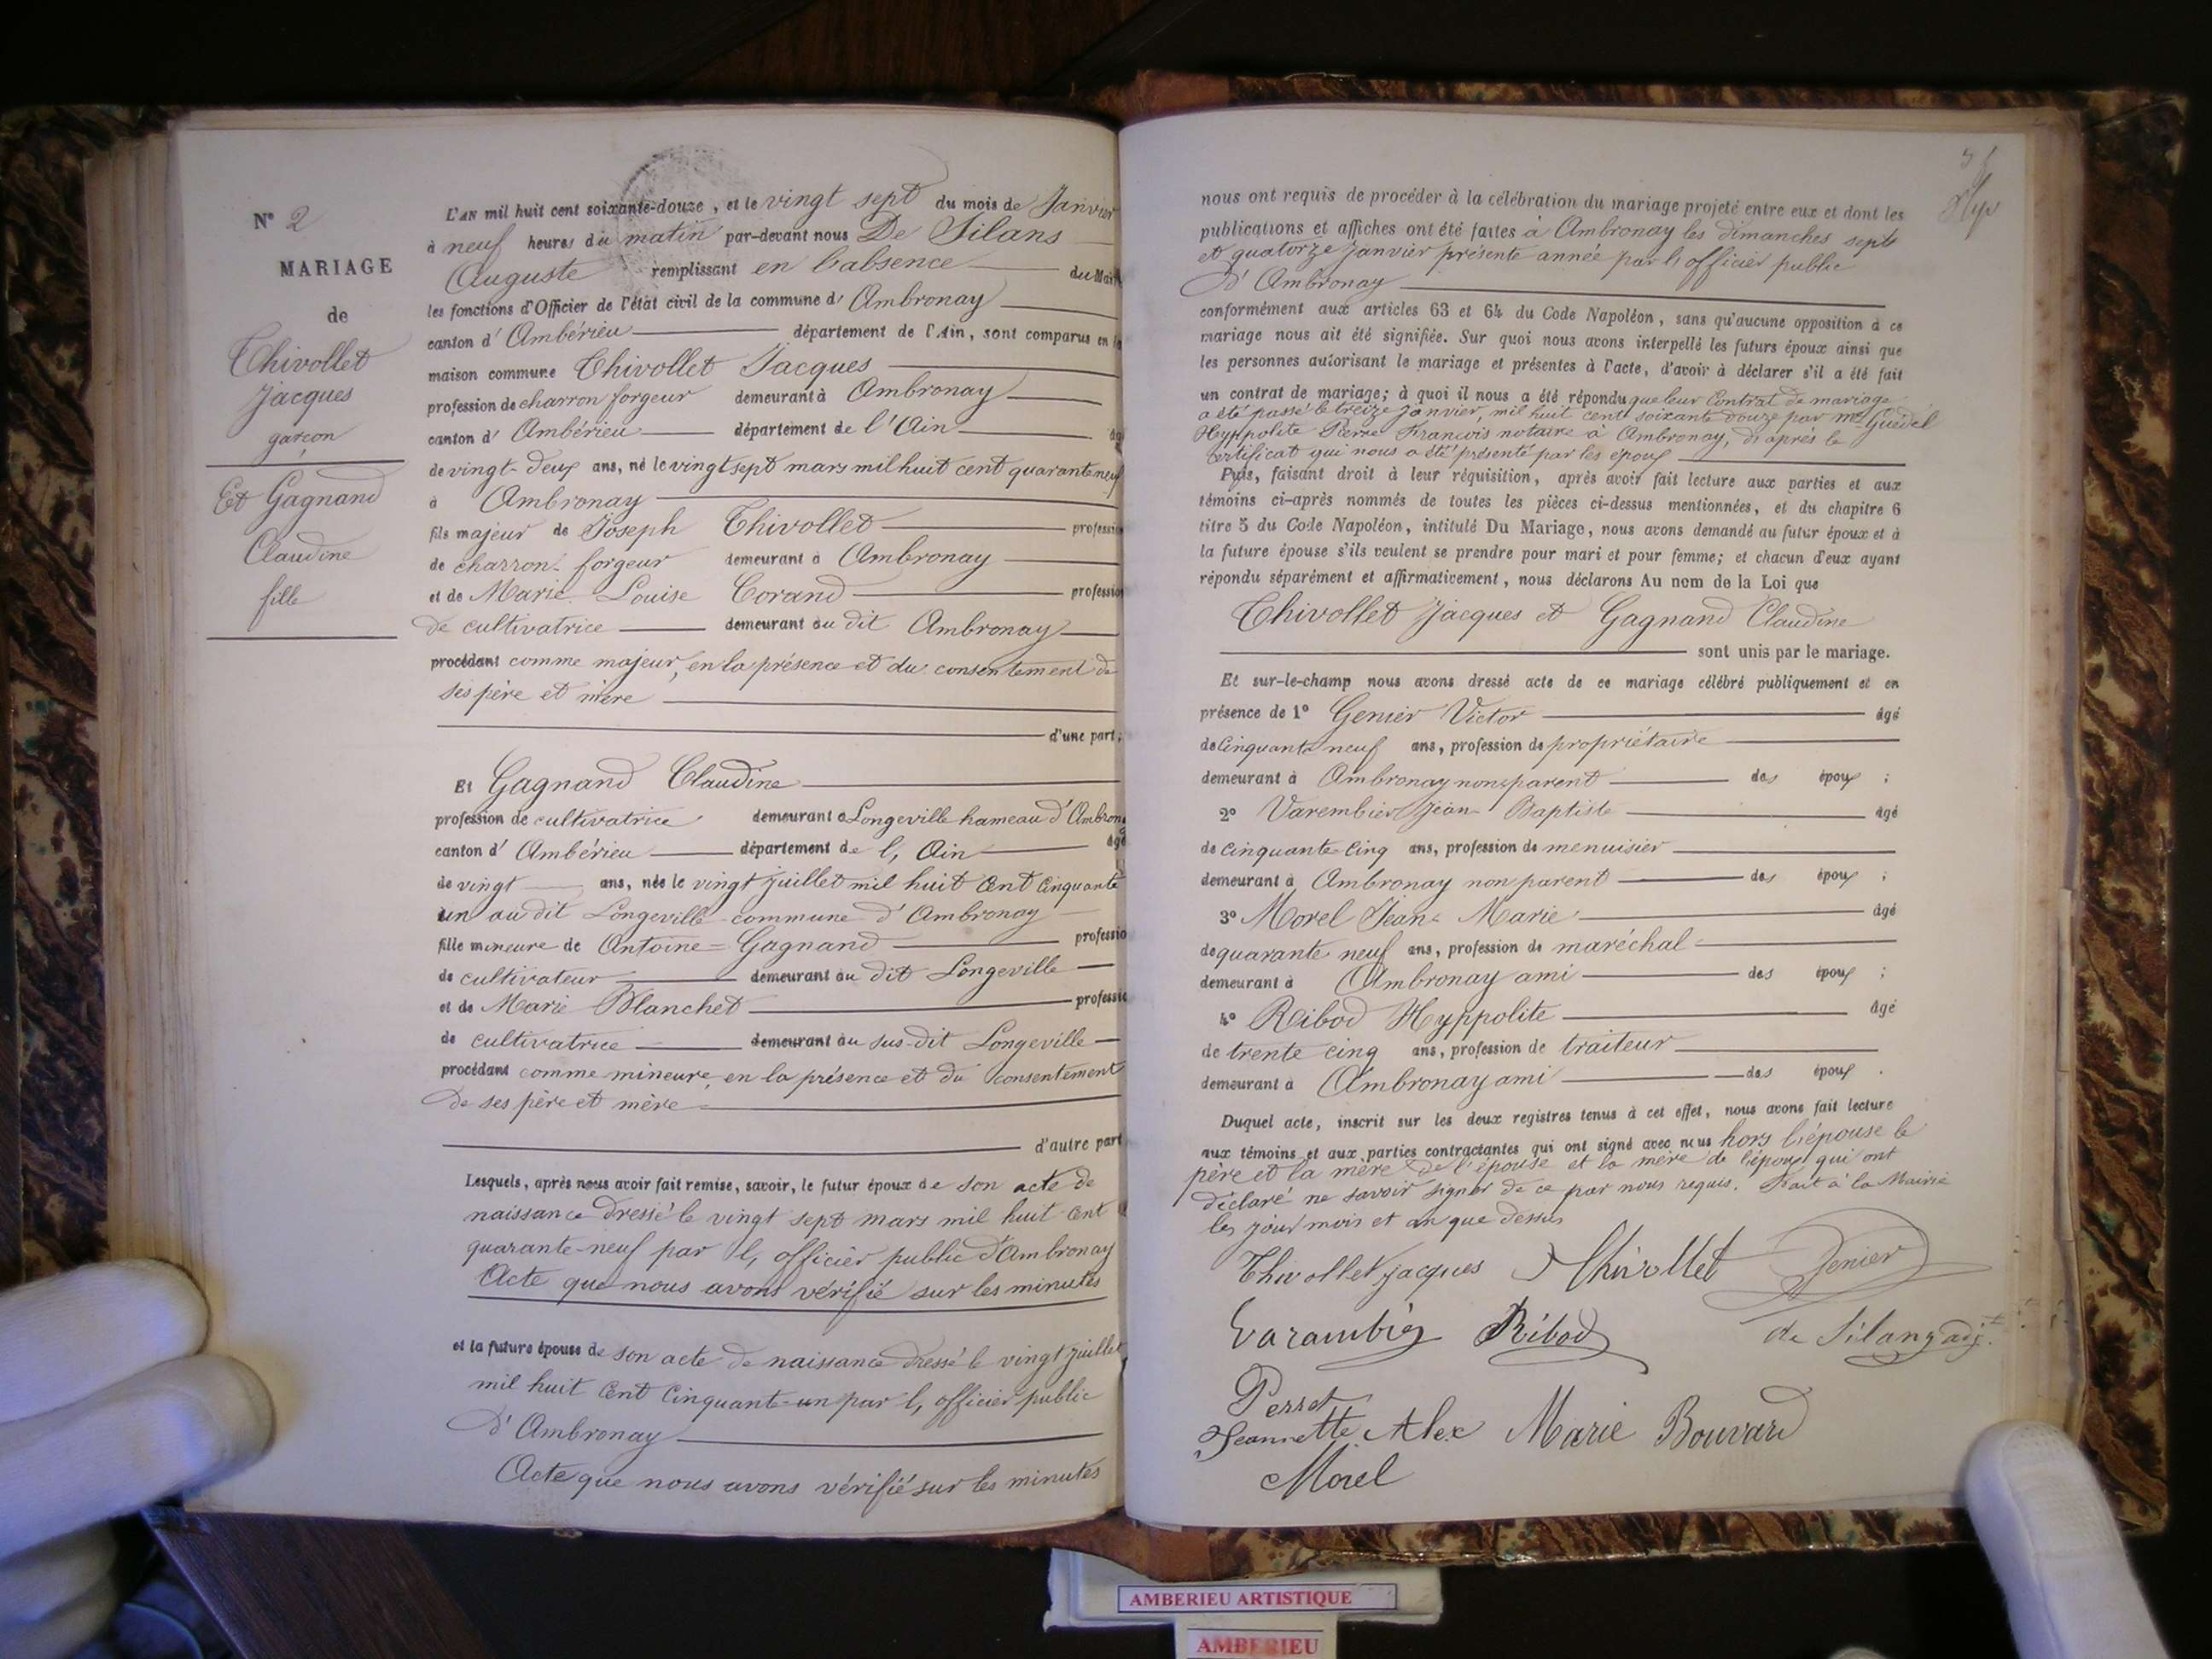 N° 2
MARIAGE
de
Thivollet
Jacques
garçon
Et Gagnand
Claudine
fille
L'AN mil huit cent soixante-douze, et le vingt sept du mois de Janvier
à neuf heures du matin par-devant nous De Silans
Auguste remplissant en l'absence du Maire
les fonctions d'Officier de l'état civil de la commune d' Ambronay
canton d' Ambérieu département de l'Ain, sont comparus en la
maison commune Thivollet Jacques
profession de charron forgeur demeurant à Ambronay
canton d' Ambérieu département de l'Ain âgé
de vingt-deux ans, né le vingt sept mars mil huit cent quarante neuf
à Ambronay
fils majeur de Joseph Thivollet profession
de charron-forgeur demeurant à Ambronay
et de Marie Louise Corand profession
de cultivatrice demeurant au dit Ambronay
procédant comme majeur, en la présence et du consentement de
ses père et mère
d'une part;
Et Gagnand Claudine
profession de cultivatrice demeurant à Longeville hameau d'Ambronay
canton d' Ambérieu département de l, Ain âgé
de vingt ans, née le vingt juillet mil huit cent cinquante
un au dit Longeville commune d'Ambronay
fille mineure de Antoine=Gagnand profession
de cultivateur demeurant au dit Longeville
et de Marie Blanchet profession
de cultivatrice demeurant au sus-dit Longeville
procédant comme mineure, en la présence et du consentement
de ses père et mère
d'autre part
Lesquels, après nous avoir fait remise, savoir, le futur époux de son acte de
naissance dressé le vingt sept mars mil huit cent
quarante-neuf par l, officier public d'Ambronay
Acte que nous avons vérifié sur les minutes
et la future épouse de son acte de naissance dressé le vingt juillet
mil huit cent cinquante-un par l, officier public
d'Ambronay
Acte que nous avons vérifié sur les minutes
nous ont requis de procéder à la célébration du mariage projeté entre eux et dont les
publications et affiches ont été faites à Ambronay les dimanches sept
et quatorze Janvier présente année par l, officier public
d'Ambronay
conformément aux articles 63 et 64 du Code Napoléon, sans qu'aucune opposition à ce
mariage nous ait été signifiée. Sur quoi nous avons interpellé les futurs époux ainsi que
les personnes autorisant le mariage et présentes à l'acte, d'avoir à déclarer s'il a été fait
un contrat de mariage; à quoi il nous a été répondu que leur Contrat de mariage
a été passé le treize Janvier, mil huit cent soixante douze par me Guédel
Hyppolite Pierre François notaire à Ambronay, d'après le
certificat qui nous a été présenté par les époux
Puis, faisant droit à leur réquisition, après avoir fait lecture aux parties et aux
témoins ci-après nommés de toutes les pièces ci-dessus mentionnées, et du chapitre 6
titre 5 du Code Napoléon, intitulé Du Mariage, nous avons demandé au futur époux et à
la future épouse s'ils veulent se prendre pour mari et pour femme; et chacun d'eux ayant
répondu séparément et affirmativement, nous déclarons Au nom de la Loi que
Thivollet Jacques et Gagnand Claudine
sont unis par le mariage.
Et sur-le-champ nous avons dressé acte de ce mariage célébré publiquement et en
présence de 1° Genier Victor âgé
de cinquante neuf ans, profession de propriétaire
demeurant à Ambronay non parent des époux ;
2° Varembier Jean-Baptiste âgé
de cinquante-cinq ans, profession de menuisier
demeurant à Ambronay non parent des époux ;
3° Morel Jean-Marie âgé
de quarante neuf ans, profession de maréchal
demeurant à Ambronay ami des époux ;
4° Ribod Hyppolite âgé
de trente cinq ans, profession de traiteur
demeurant à Ambronay ami des époux .
Duquel acte, inscrit sur les deux registres tenus à cet effet, nous avons fait lecture
aux témoins et aux parties contractantes qui ont signé avec nous hors l'épouse le
père et la mère de l'épouse et la mère de l'époux qui ont
déclaré ne savoir signer de ce par nous requis. Fait à la Mairie
les jour mois et an que dessus
Thivollet jacques Thivollet Genier
Varambier Ribod de Silans adjt.
Perret
Jeannette Alex Marie Bouvard
Morel
AMBERIEU ARTISTIQUE
AMBERIEU